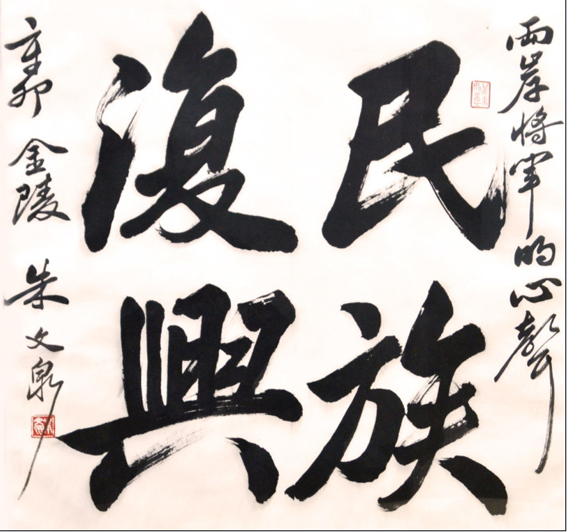 兩岸將軍的心聲
民族
復興
辛卯 金陵 朱文泉